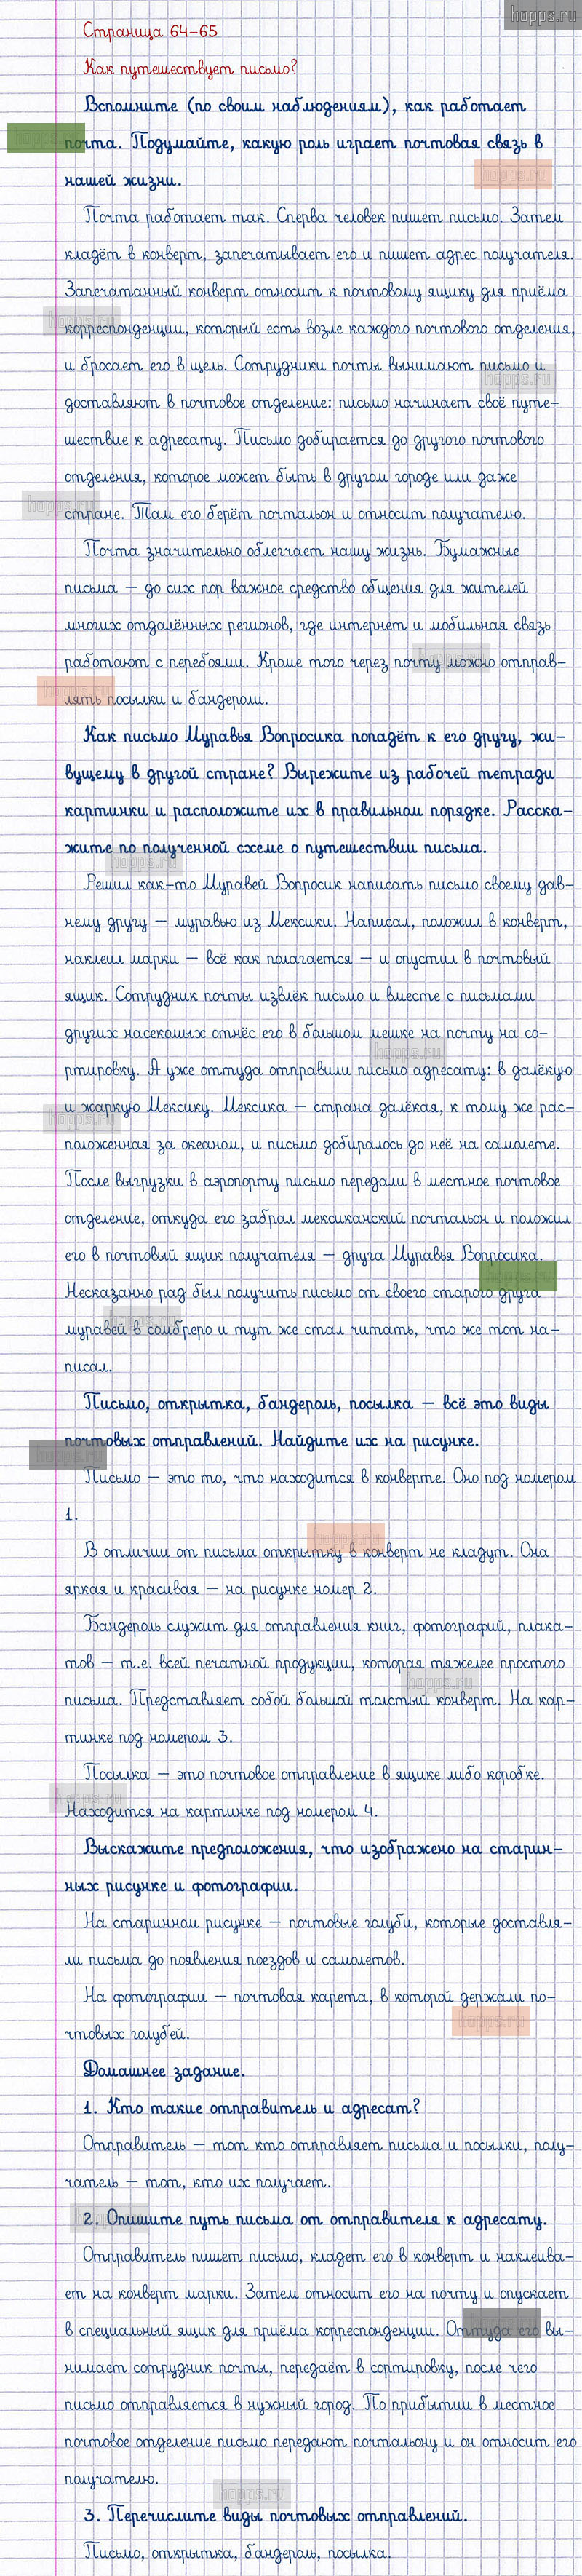 hopps.ru
Страница 64-65
Как путешествует письмо?
Вспомните (по своим наблюдениям), как работает
почта. Подумайте, какую роль играет почтовая связь в
нашей жизни.
Почта работает так. Сперва человек пишет письмо. Затем
кладёт в конверт, запечатывает его и пишет адрес получателя.
Запечатанный конверт относит к почтовому ящику для приёма
корреспонденции, который есть возле каждого почтового отделения,
и бросает его в щель. Сотрудники почты вынимают письмо и
доставляют в почтовое отделение: письмо начинает своё путе-
шествие к адресату. Письмо добирается до другого почтового
отделения, которое может быть в другом городе или даже
стране. Там его берёт почтальон и относит получателю.
Почта значительно облегчает нашу жизнь. Бумажные
письма – до сих пор важное средство общения для жителей
многих отдалённых регионов, где интернет и мобильная связь
работают с перебоями. Кроме того через почту можно отправ-
лять посылки и бандероли.
Как письмо Муравья Вопросика попадёт к его другу, жи-
вущему в другой стране? Вырежите из рабочей тетради
картинки и расположите их в правильном порядке. Расска-
жите по полученной схеме о путешествии письма.
Решил как-то Муравей Вопросик написать письмо своему дав-
нему другу – муравью из Мексики. Написал, положил в конверт,
наклеил марки – всё как полагается – и опустил в почтовый
ящик. Сотрудник почты извлёк письмо и вместе с письмами
других насекомых отнёс его в большом мешке на почту на со-
ртировку. А уже оттуда отправили письмо адресату: в далёкую
и жаркую Мексику. Мексика – страна далёкая, к тому же рас-
положенная за океаном, и письмо добиралось до неё на самолете.
После выгрузки в аэропорту письмо передали в местное почтовое
отделение, откуда его забрал мексиканский почтальон и положил
его в почтовый ящик получателя – друга Муравья Вопросика.
Несказанно рад был получить письмо от своего старого друга
муравей в сомбреро и тут же стал читать, что же тот на-
писал.
Письмо, открытка, бандероль, посылка – всё это виды
почтовых отправлений. Найдите их на рисунке.
Письмо – это то, что находится в конверте. Оно под номером
1.
В отличии от письма открытку в конверт не кладут. Она
яркая и красивая – на рисунке номер 2.
Бандероль служит для отправления книг, фотографий, плака-
тов – т.е. всей печатной продукции, которая тяжелее простого
письма. Представляет собой большой толстый конверт. На кар-
тинке под номером 3.
Посылка – это почтовое отправление в ящике либо коробке.
Находится на картинке под номером 4.
Выскажите предположения, что изображено на старин-
ных рисунке и фотографии.
На старинном рисунке – почтовые голуби, которые доставля-
ли письма до появления поездов и самолетов.
На фотографии – почтовая карета, в которой держали по-
чтовых голубей.
Домашнее задание.
1. Кто такие отправитель и адресат?
Отправитель – тот кто отправляет письма и посылки, полу-
чатель – тот, кто их получает.
2. Опишите путь письма от отправителя к адресату.
Отправитель пишет письмо, кладет его в конверт и наклеива-
ет на конверт марки. Затем относит его на почту и опускает
в специальный ящик для приёма корреспонденции. Оттуда его вы-
нимает сотрудник почты, передаёт в сортировку, после чего
письмо отправляется в нужный город. По прибытии в местное
почтовое отделение письмо передают почтальону и он относит его
получателю.
3. Перечислите виды почтовых отправлений.
Письмо, открытка, бандероль, посылка.